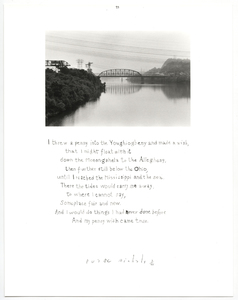 I threw a penny into the Youghiogheny and made a wish,
that I might float with it
down the Monongahela to the Allegheny,
then further still below the Ohio,
until I reached the Mississippi and the sea.
There the tides would carry me away,
to where I cannot say,
Someplace far and new.
And I would do things I had never done before
And my penny wish came true.